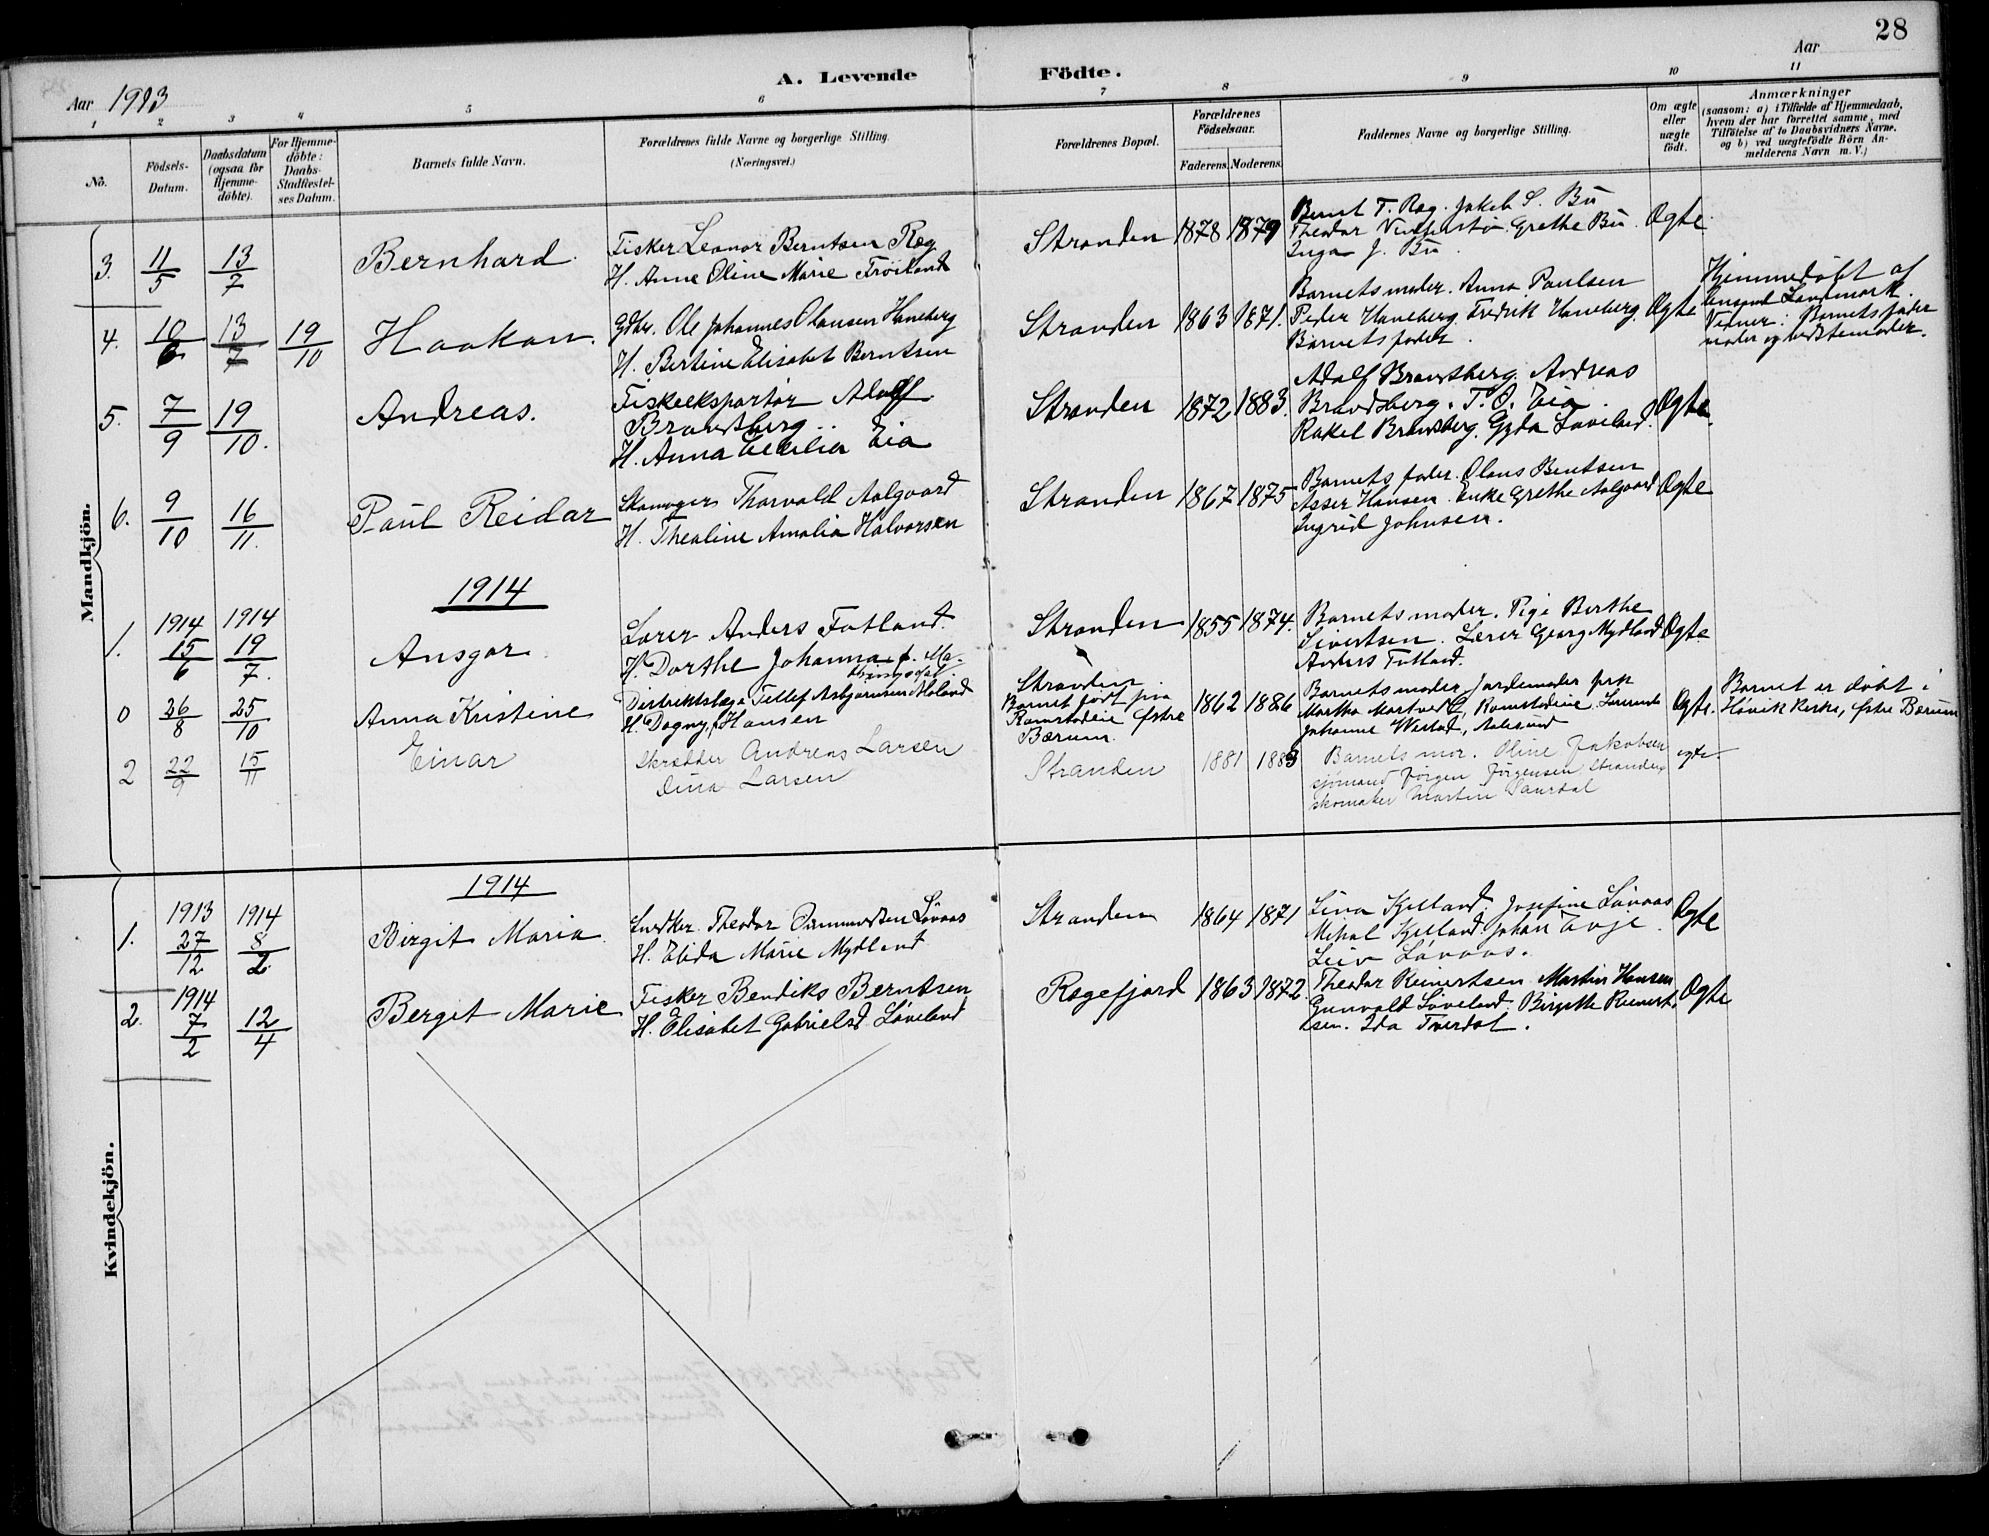 28
A. Levende Födte.
Aar 1913
Aar
1 2 3 4 5 6 7 8 9 10 11
No.
Födsels-Datum.
Daabsdatum (ogsaa for Hjemme-döbte).
For Hjemme-döbte: Daabs-Stadfæstel-ses Datum.
Barnets fulde Navn.
Forældrenes fulde Navne og borgerlige Stilling.
(Næringsvei.)
Forældrenes Bopæl.
Forældrenes Födselsaar.
Faderens. Moderens.
Faddernes Navne og borgerlige Stilling.
Om ægte eller uægte födt.
Anmærkninger
(saasom: a) i Tilfælde af Hjemmedaab,
hvem der har forrettet samme, med
Tilföielse af to Daabsvidners Navne.
og b) ved uægtefödte Börn An-
melderens Navn m. V.)
Mandkjön.
3. 11/5 13/7 Bernhard.
Fisker Leonor Berntsen Ræg
H. Anne Oline Marie Fröiland
Stranden 1878 1879
Bernt T. Ræg. Jakob S. Bu
Theodor Grethe Bu.
Inga J. Bu.
Ægte.
4. 10/6 13/7 19/10 Haakon.
Gdbr. Ole Johannes Olausen Haneberg
H. Bertine Elisabet Berntsen
Stranden 1863 1871.
Barnets moder. Anna Paulsen
Peder Haneberg. Fredrik Haneberg.
Barnets fader.
Ægte
Hjemmedöbt af
Landmark.
Vidner: Barnets fader
moder og bedstemoder.
5. 7/9 19/10. Andreas.
Fiskeeksportör Adolf
Brandsberg.
H. Anna Cecilia Eia
Stranden 1872 1883.
Adolf Brandsberg. Andreas
Brandsberg. T. O. Eia.
Rakel Brandsberg. Gyda Løveland.
Ægte.
6. 9/10 16/11. Paul Reidar
Skomager Thorvald Aalgaard
H. Thealine Amalia Halvorsen
Stranden 1867 1875
Barnets fader. Olaus Bentsen
Asser Hansen. Enke Grethe Aalgaard
Ingrid Johnsen.
Ægte
1914
1. 1914 15/6 1914 19/7. Ansgar.
Lærer Anders Fotland.
H. Dorthe Johanna f. Ma-
Stranden 1855 1874.
Barnets moder. Pige Berthe
Sivertsen. Lærer Georg Mydland
Anders Fotland.
Ægte.
0 26/8 25/10 Anna Kristine
Distriktslæge Tellef Asbjørnsen Moland
H. Dagny f. Hansen
Stranden
Barnet født paa
Ramstadeie østre
Bærum.
1862 1886
Barnets moder, Jordemoder frk
Martha Ramstadeie.
Johanne Westad, Aalesund
Ægte.
Barnet er døbt i
Høvik Kirke, østre Bærum
2 22/9 15/11 Einar
Skrædder Andreas Larsen
Dina Larsen
Stranden 1881 1883
Barnets mor. Oline Jakobsen
sjömand Jörgen Jörgensen Stranden,
skomaker Martin Saurdal
egte.
1914
Kvindekjön.
1. 1913 27/12 1914 8/2. Birgit Maria.
Snedker. Theodor Ommundsen Løvaas
H. Elida Marie Mydland.
Stranden 1864 1871
Lina Kjelland. Josefine Løvaas
Mikal Kjelland. Johan Tveje.
Leiv Løvaas.
Ægte
2. 1914 7/2 12/4 Bergit Marie
Fisker Bendiks Berntsen
H. Elisabet Gabrielsd. Løveland
Rægefjord 1863 1872.
Theodor Reinertsen Martin Hansen
Gunvald Løveland. Birgitte Reinert-
sen. Ida Tverdal.
Ægte